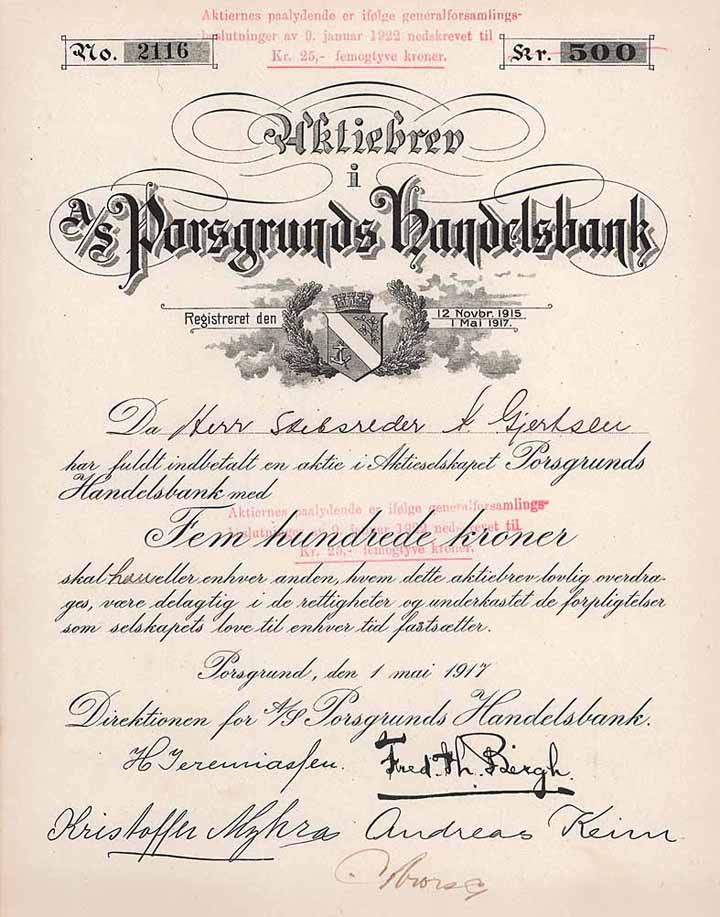 Aktiernes paalydende er ifølge generalforsamlings-
beslutninger av 9. januar 1922 nedskrevet til
Kr. 25,- femogtyve kroner.
No. 2116
Kr. 500
Aktiebrev
i
A/S Porsgrunds Handelsbank
Registreret den 12 Novbr. 1915
1 Mai 1917.
Da Herr Skibsreder A. Gjertsen
har fuldt indbetalt en aktie i Aktieselskapet Porsgrunds
Handelsbank med
Aktiernes paalydende er ifølge generalforsamlings-
beslutninger av 9. januar 1922 nedskrevet til
Kr. 25,- femogtyve kroner.
Fem hundrede kroner
skal han eller enhver anden, hvem dette aktiebrev lovlig overdra-
ges, være delagtig i de rettigheter og underkastet de forpligtelser
som selskapets love til enhver tid fastsætter.
Porsgrund, den 1 mai 1917
Direktionen for A/S Porsgrunds Handelsbank.
H Jeremiassen. Fred. Th. Bergh.
Kristoffer Myhra Andreas Keim